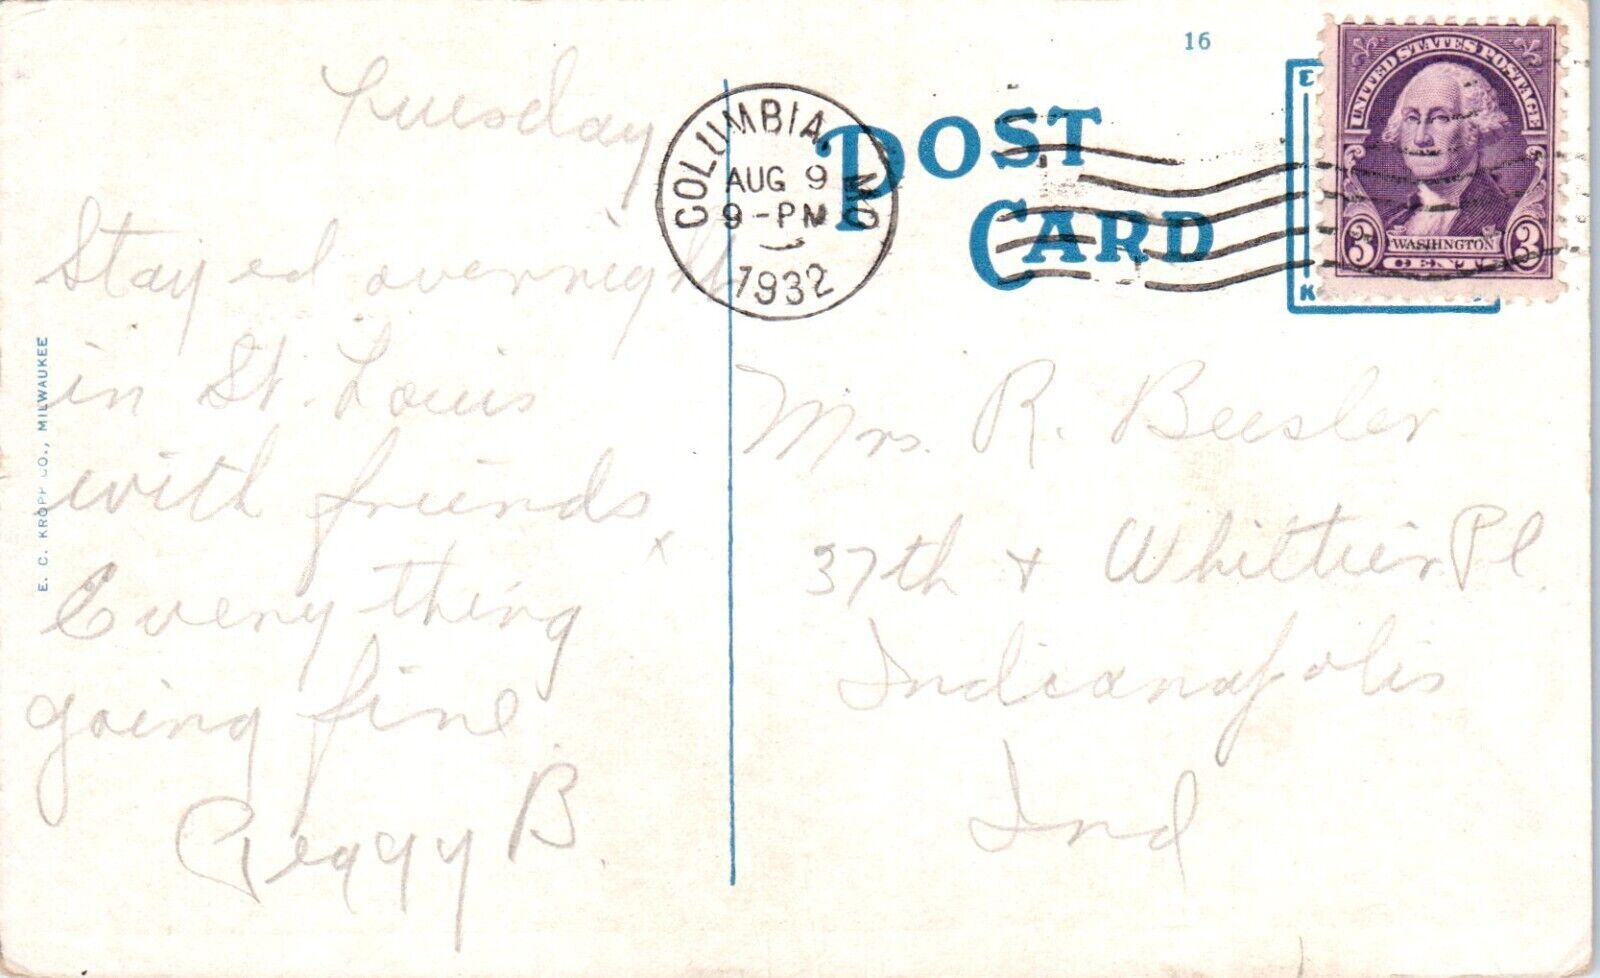 Tuesday
Stayed overnight
in St. Louis
with friends.
Everything
going fine.
Peggy B.
E. C. KROPP CO., MILWAUKEE
COLUMBIA, MO
AUG 9
9-PM
1932
16
POST
CARD
UNITED STATES POSTAGE
3 WASHINGTON 3
CENTS
E
K
Mrs. R. Beesler
37th + Whittier Pl.
Indianapolis
Ind